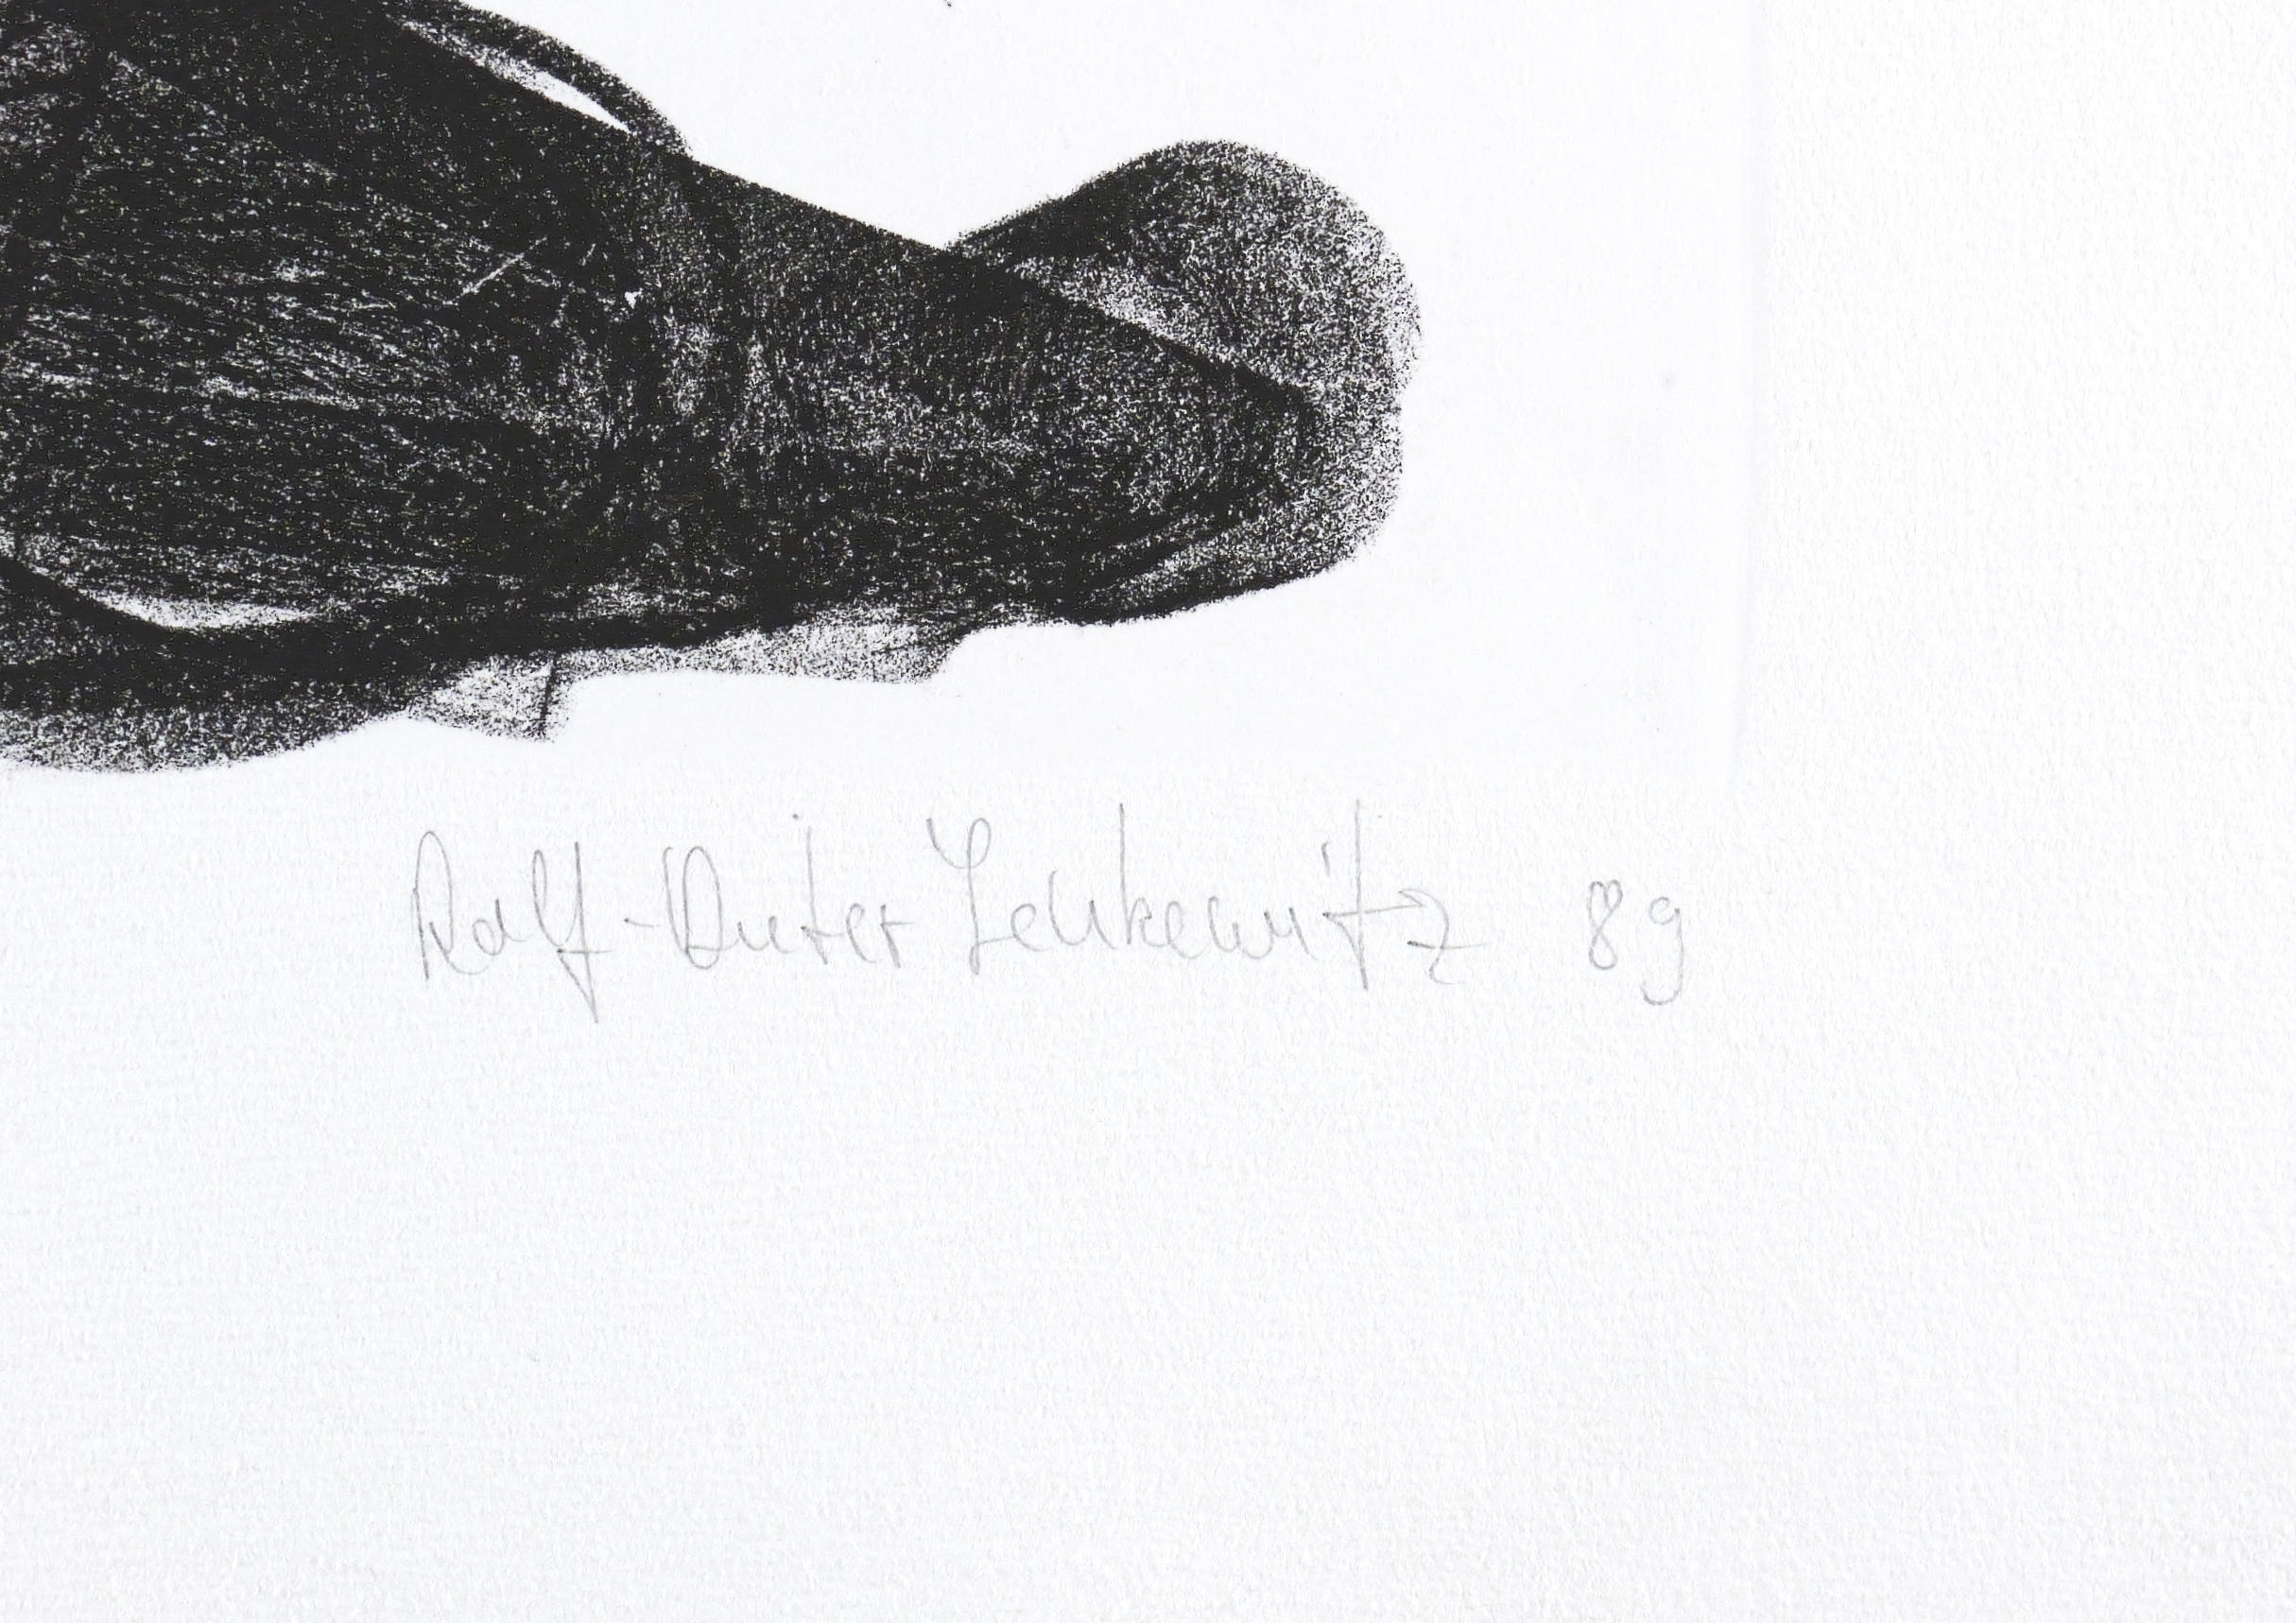 Ralf-Dieter Lenkewitz 89